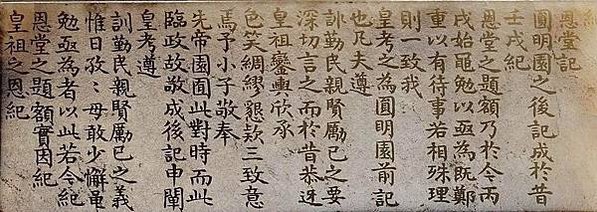 恩堂記
圓明園之後記成於昔
壬戌紀
恩堂之題額乃於今丙
戌始黽勉以亟為既鄭
重以有待事若相殊理
則一致我
皇考之為圓明園前記
也凡夫遵
訓勤民親賢勵己之要
深切言之而於昔恭迓
皇祖鑾輿欣承
色笑綢繆懇欵三致意
焉予小子敬奉
先帝園面此對時而此
臨政故敬成後記申闡
皇考遵
訓勤民親賢勵己之義
惟日孜孜母敢少懈黽
勉亟為者以此若今紀
恩堂之題額實因紀
皇祖之恩紀